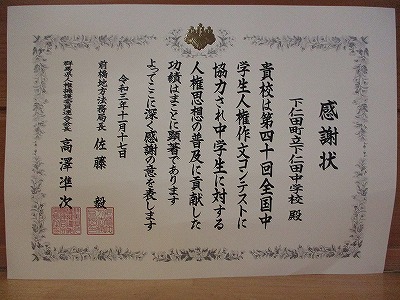 感謝状
下仁田町立下仁田中学校 殿
貴校は第四十回全国中
学生人権作文コンテストに
協力され中学生に対する
人権思想の普及に貢献した
功績はまことに顕著であります
よってここに深く感謝の意を表します
令和三年十一月十七日
前橋地方法務局長 佐藤 毅
群馬県人権擁護委員連合会長 高澤準次